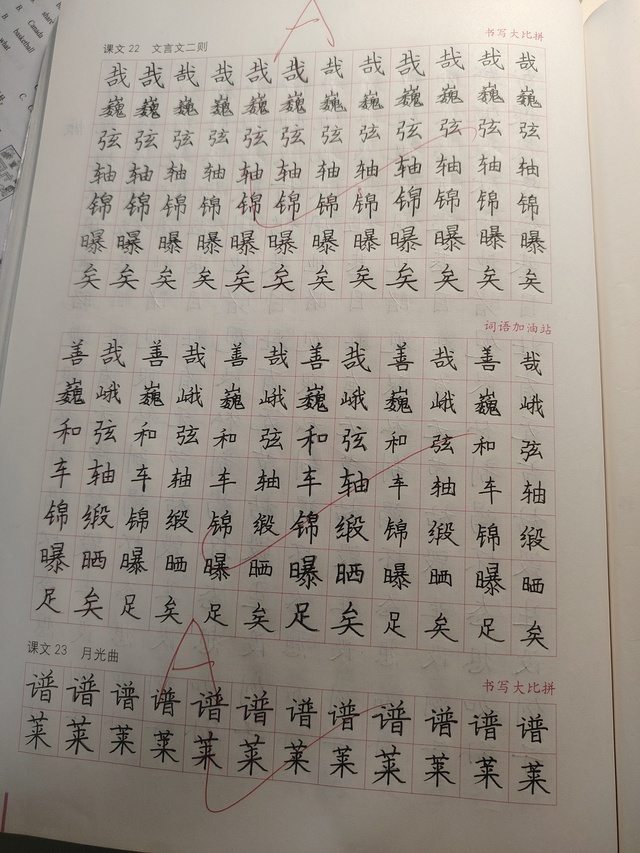 Canada
B
basketball
what
C
A
课文 22 文言文二则
书写大比拼
哉 哉 哉 哉 哉 哉 哉 哉 哉 哉 哉 哉
巍 巍 巍 巍 巍 巍 巍 巍 巍 巍 巍 巍
弦 弦 弦 弦 弦 弦 弦 弦 弦 弦 弦 弦
轴 轴 轴 轴 轴 轴 轴 轴 轴 轴 轴 轴
锦 锦 锦 锦 锦 锦 锦 锦 锦 锦 锦 锦
曝 曝 曝 曝 曝 曝 曝 曝 曝 曝 曝 曝
矣 矣 矣 矣 矣 矣 矣 矣 矣 矣 矣 矣
词语加油站
善 哉 善 哉 善 哉 善 哉 善 哉 善 哉
巍 峨 巍 峨 巍 峨 巍 峨 巍 峨 巍 峨
和 弦 和 弦 和 弦 和 弦 和 弦 和 弦
车 轴 车 轴 车 轴 车 轴 车 轴 车 轴
锦 缎 锦 缎 锦 缎 锦 缎 锦 缎 锦 缎
曝 晒 曝 晒 曝 晒 曝 晒 曝 晒 曝 晒
足 矣 足 矣 足 矣 足 矣 足 矣 足 矣
A
课文 23 月光曲
书写大比拼
谱 谱 谱 谱 谱 谱 谱 谱 谱 谱 谱 谱
莱 莱 莱 莱 莱 莱 莱 莱 莱 莱 莱 莱